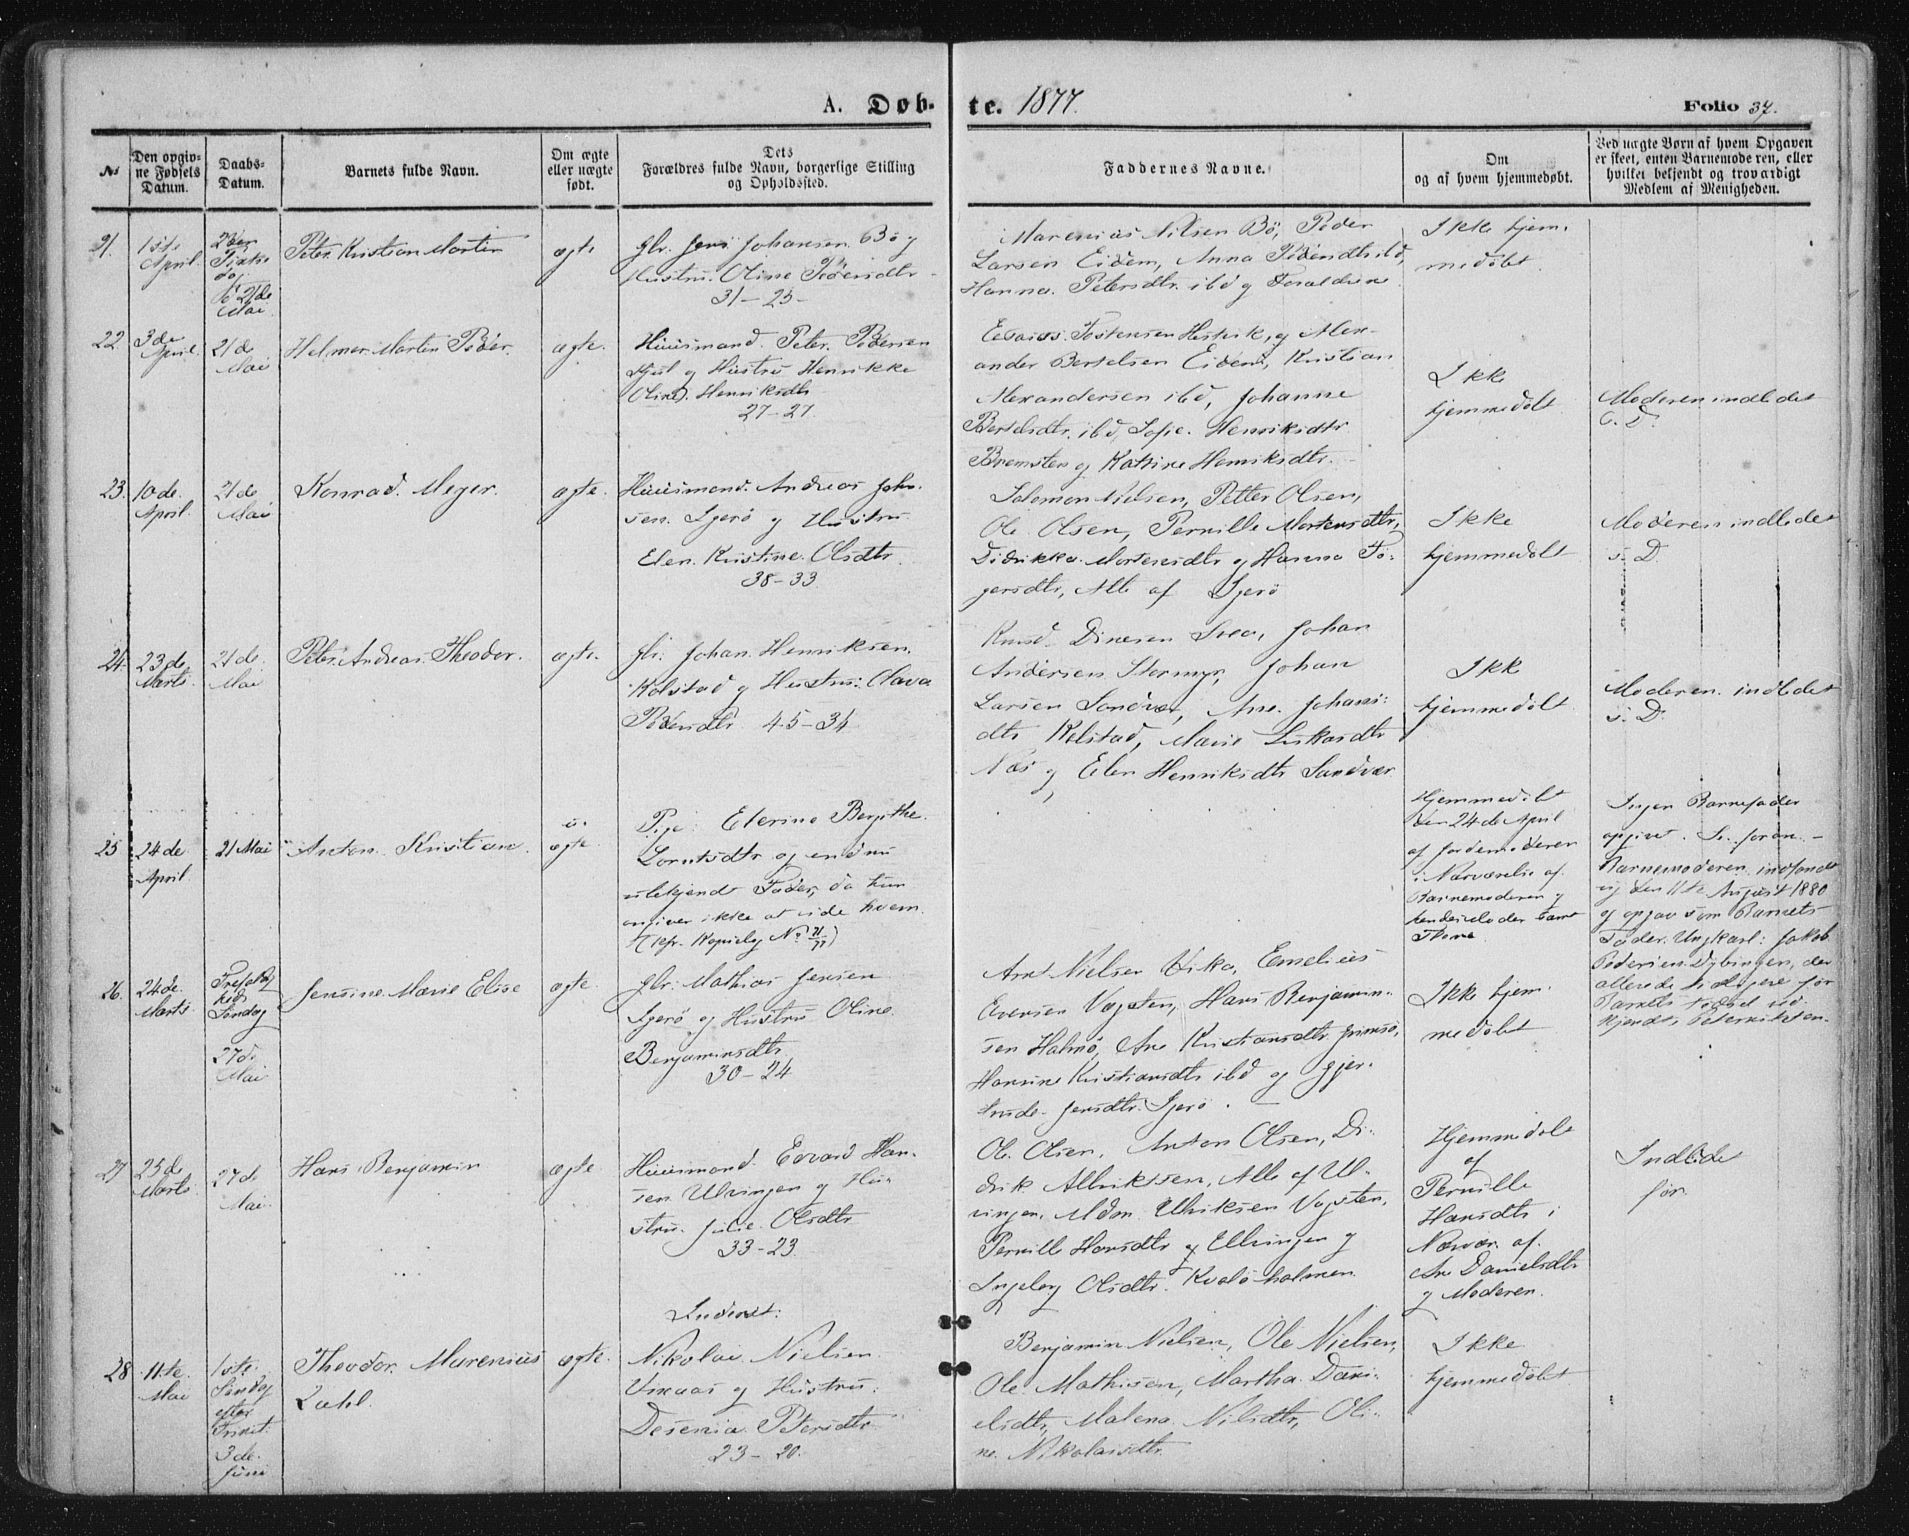 A. Døb-
te. 1877.
Folio 37.
No
Den opgiv-
ne Fødsels
Datum.
Daabs-
Datum.
Barnets fulde Navn.
Om ægte
eller uægte
født.
Dets
Forældres fulde Navn, borgerlige Stilling
og Opholdssted.
Faddernes Navne.
Om
og af hvem hjemmedøbt.
Ved uægte Børn af hvem Opgaven
er skeet, enten Barnemoderen, eller
hvilket bekjendt og troværdigt
Medlem af Menigheden.
21.
1ste
April
2den
Pintse
dag
21de
Mai
Peter Kristian Martin
ægte
Jens Johansen Bö og
Hustru Oline Pedersdtr
31-25-
Marenius Nilsen Bö, Peder
Larsen Eidem, Anna Pedersdtr ibd,
Hanna Petersdtr. ibd og Forældrene
Ikke hjem-
medøbt
22.
3de
April.
21de
Mai
Helmer Martin Peder.
ægte.
Huusmand Peter Pedersen
og Hustru Henrikke
Oline Henriksdtr
27-27.
Tostensen og Alex-
ander Bertelsen Eidem, Kristian
Alexandersen ibd, Johanne
Bertelsdtr. ibd, Sofie Henriksdtr
Bremsten og Katrine Henriksdtr.
Ikke
hjemmedøbt
Moderen indledet
s. D.
23.
10de.
April.
21de
Mai
Konrad Meyer.
ægte.
Huusmand Andreas Johan-
sen Igerö og Hustru
Elen Kristine Olsdtr.
38-33
Salomon Nielsen, Petter Olsen,
Ole Olsen, Pernille Mortensdtr,
Didrikka Mortensdtr og Hanna Tö-
gersdtr, Alle af Igerö
Ikke
hjemmedøbt
Moderen indledet
s. D.
24.
23de
Marts.
21de
Mai
Peter Andreas Theodor.
ægte.
Johan Henriksen
Kolstad og Hustru Olava
Pedersdtr 45-34
Knud Dinesen Johan
Andersen Stormyr, Johan
Larsen Sandvær, Ane Johans-
dtr Kolstad, Marie
Næs og Elen Henriksdtr Sandvær
Ikke
hjemmedøbt
Moderen indledet
s. D.
25
24de
April
21 Mai
Anton Kristian
u-
ægte.
Pige Elerine Bergithe
Lorntsdtr og endnu
ubekjendt Fader, da hun
angiver ikke at vide hvem.
(cfr. Kopiebog No 71/77)
Hjemmedøbt
den 24de April
af Jordemoderen
i Nærværelse af
Barnemoderen og
hendes Moder samt
Ingen Barnefader
opgivet. Se foran.-
Barnemoderen indfandt
sig den 11te August 1880
og opgav som Barnets
Fader Ungkarl Jakob
Pedersen Dybingen, der
allerede tidligere før
Barnets fødsel ved-
26.
24de.
Marts
Trefoldig-
heds
Søndag
27de
Mai
Jensine Marie Elise
ægte.
Mathias Jensen
Igerö og Hustru Oline
Benjaminsdtr
30-24
Arnt Nielsen Vika, Emelius
Evensen Vægsten, Hans Benjamin-
sen Halmö, Ane Kristiansdtr
Hansine Kristiansdtr ibd og Gjer-
trude Jensdtr. Igerö.
Ikke hjem-
medøbt
27
25de
Marts
27de
Mai.
Hans Benjamin
ægte
Huusmand Edvard Han-
sen Ulvingen og Hu-
stru Julie Olsdtr
33-23
Ole Olsen, Anton Olsen, Di-
drik Albriksen, Alle af Ul-
vingen, Ulriksen Vægsten,
Pernille Hansdtr Ulvingen og
Ingeborg Olsdtr. Kvalöholmen
Hjemmedøbt
af
Pernille
Hansdtr i
Nærvær. af.
Ane Danielsdtr
og Moderen.
Indledet
før.
28
11te
Mai
1ste
Søndag
efter
Trinit:
3de.
Juni
Theodor Marenius
Zahl.
ægte.
Inderst:
Nikolai Nielsen
Vikaas og Hustru:
Desenia Petersdtr
23-20.
Benjamin Nielsen, Ole Nielsen,
Ole Mathisen, Martha Dani-
elsdtr, Malena Nilsdtr, Oli-
ne Nikolaisdtr.
Ikke
hjemmedøbt